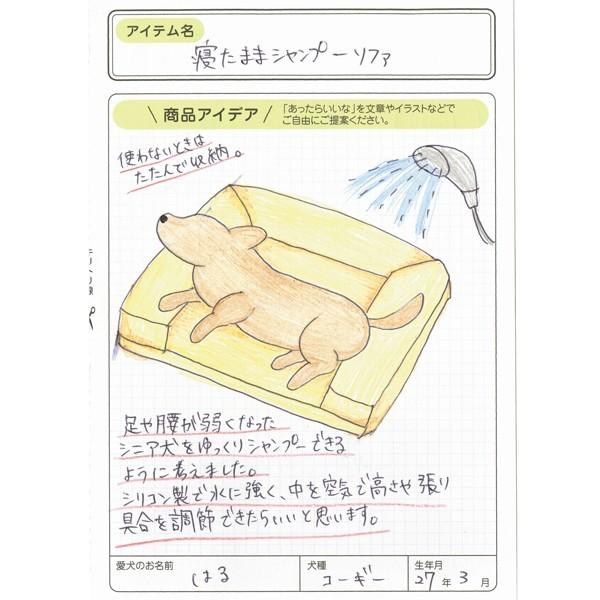 アイテム名
寝たままシャンプーソファ
商品アイデア
「あったらいいな」を文章やイラストなどで
ご自由にご提案ください。
使わないときは
たたんで収納。
足や腰が弱くなった
シニア犬をゆっくりシャンプーできる
ように考えました。
シリコン製で水に強く、中を空気で高さや張り
具合を調節できたらいいと思います。
愛犬のお名前
はる
犬種
コーギー
生年月
27年3月